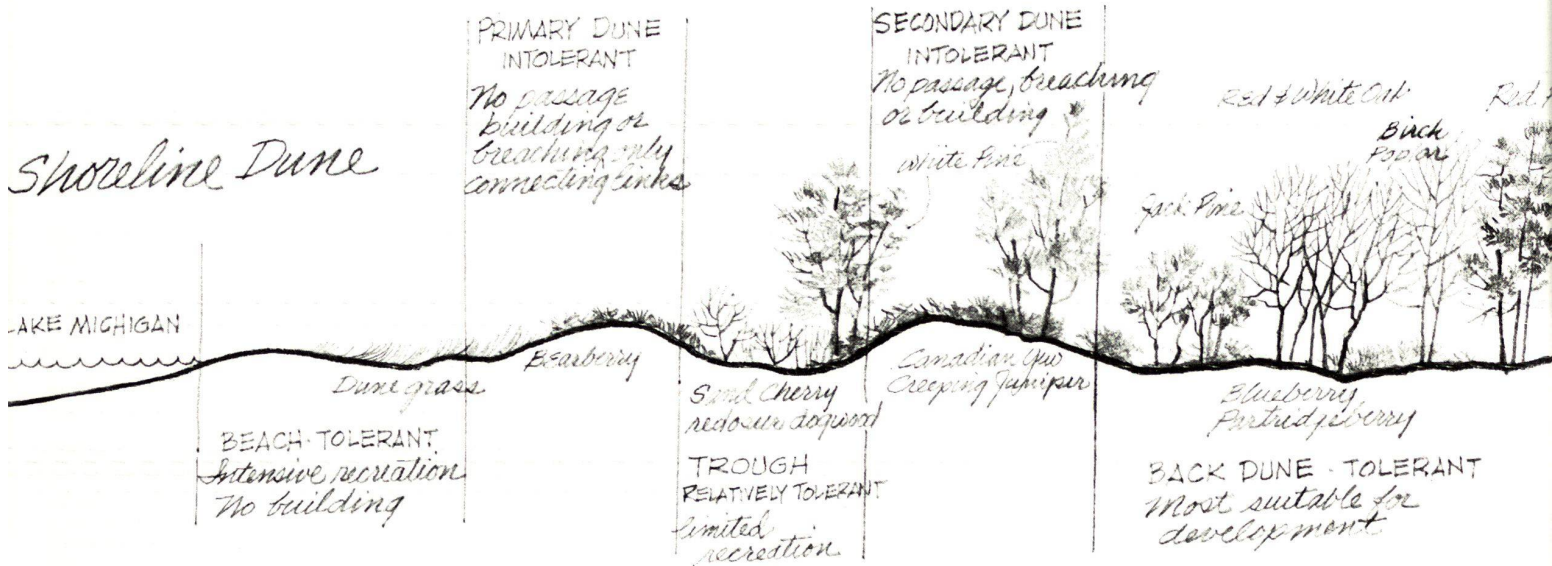 Shoreline Dune
LAKE MICHIGAN
Dune grass
BEACH · TOLERANT
Intensive recreation
No building
PRIMARY DUNE
INTOLERANT
No passage
building or
breaching only
connecting links
Bearberry
Sand Cherry
redosier dogwood
TROUGH
RELATIVELY TOLERANT
limited
recreation
SECONDARY DUNE
INTOLERANT
No passage, breaching
or building
White Pine
Canadian Yew
Creeping Juniper
Jack Pine
Red & White Oak
Birch
Poplar
Red
Blueberry,
Partridgeberry
BACK DUNE · TOLERANT
Most suitable for
development